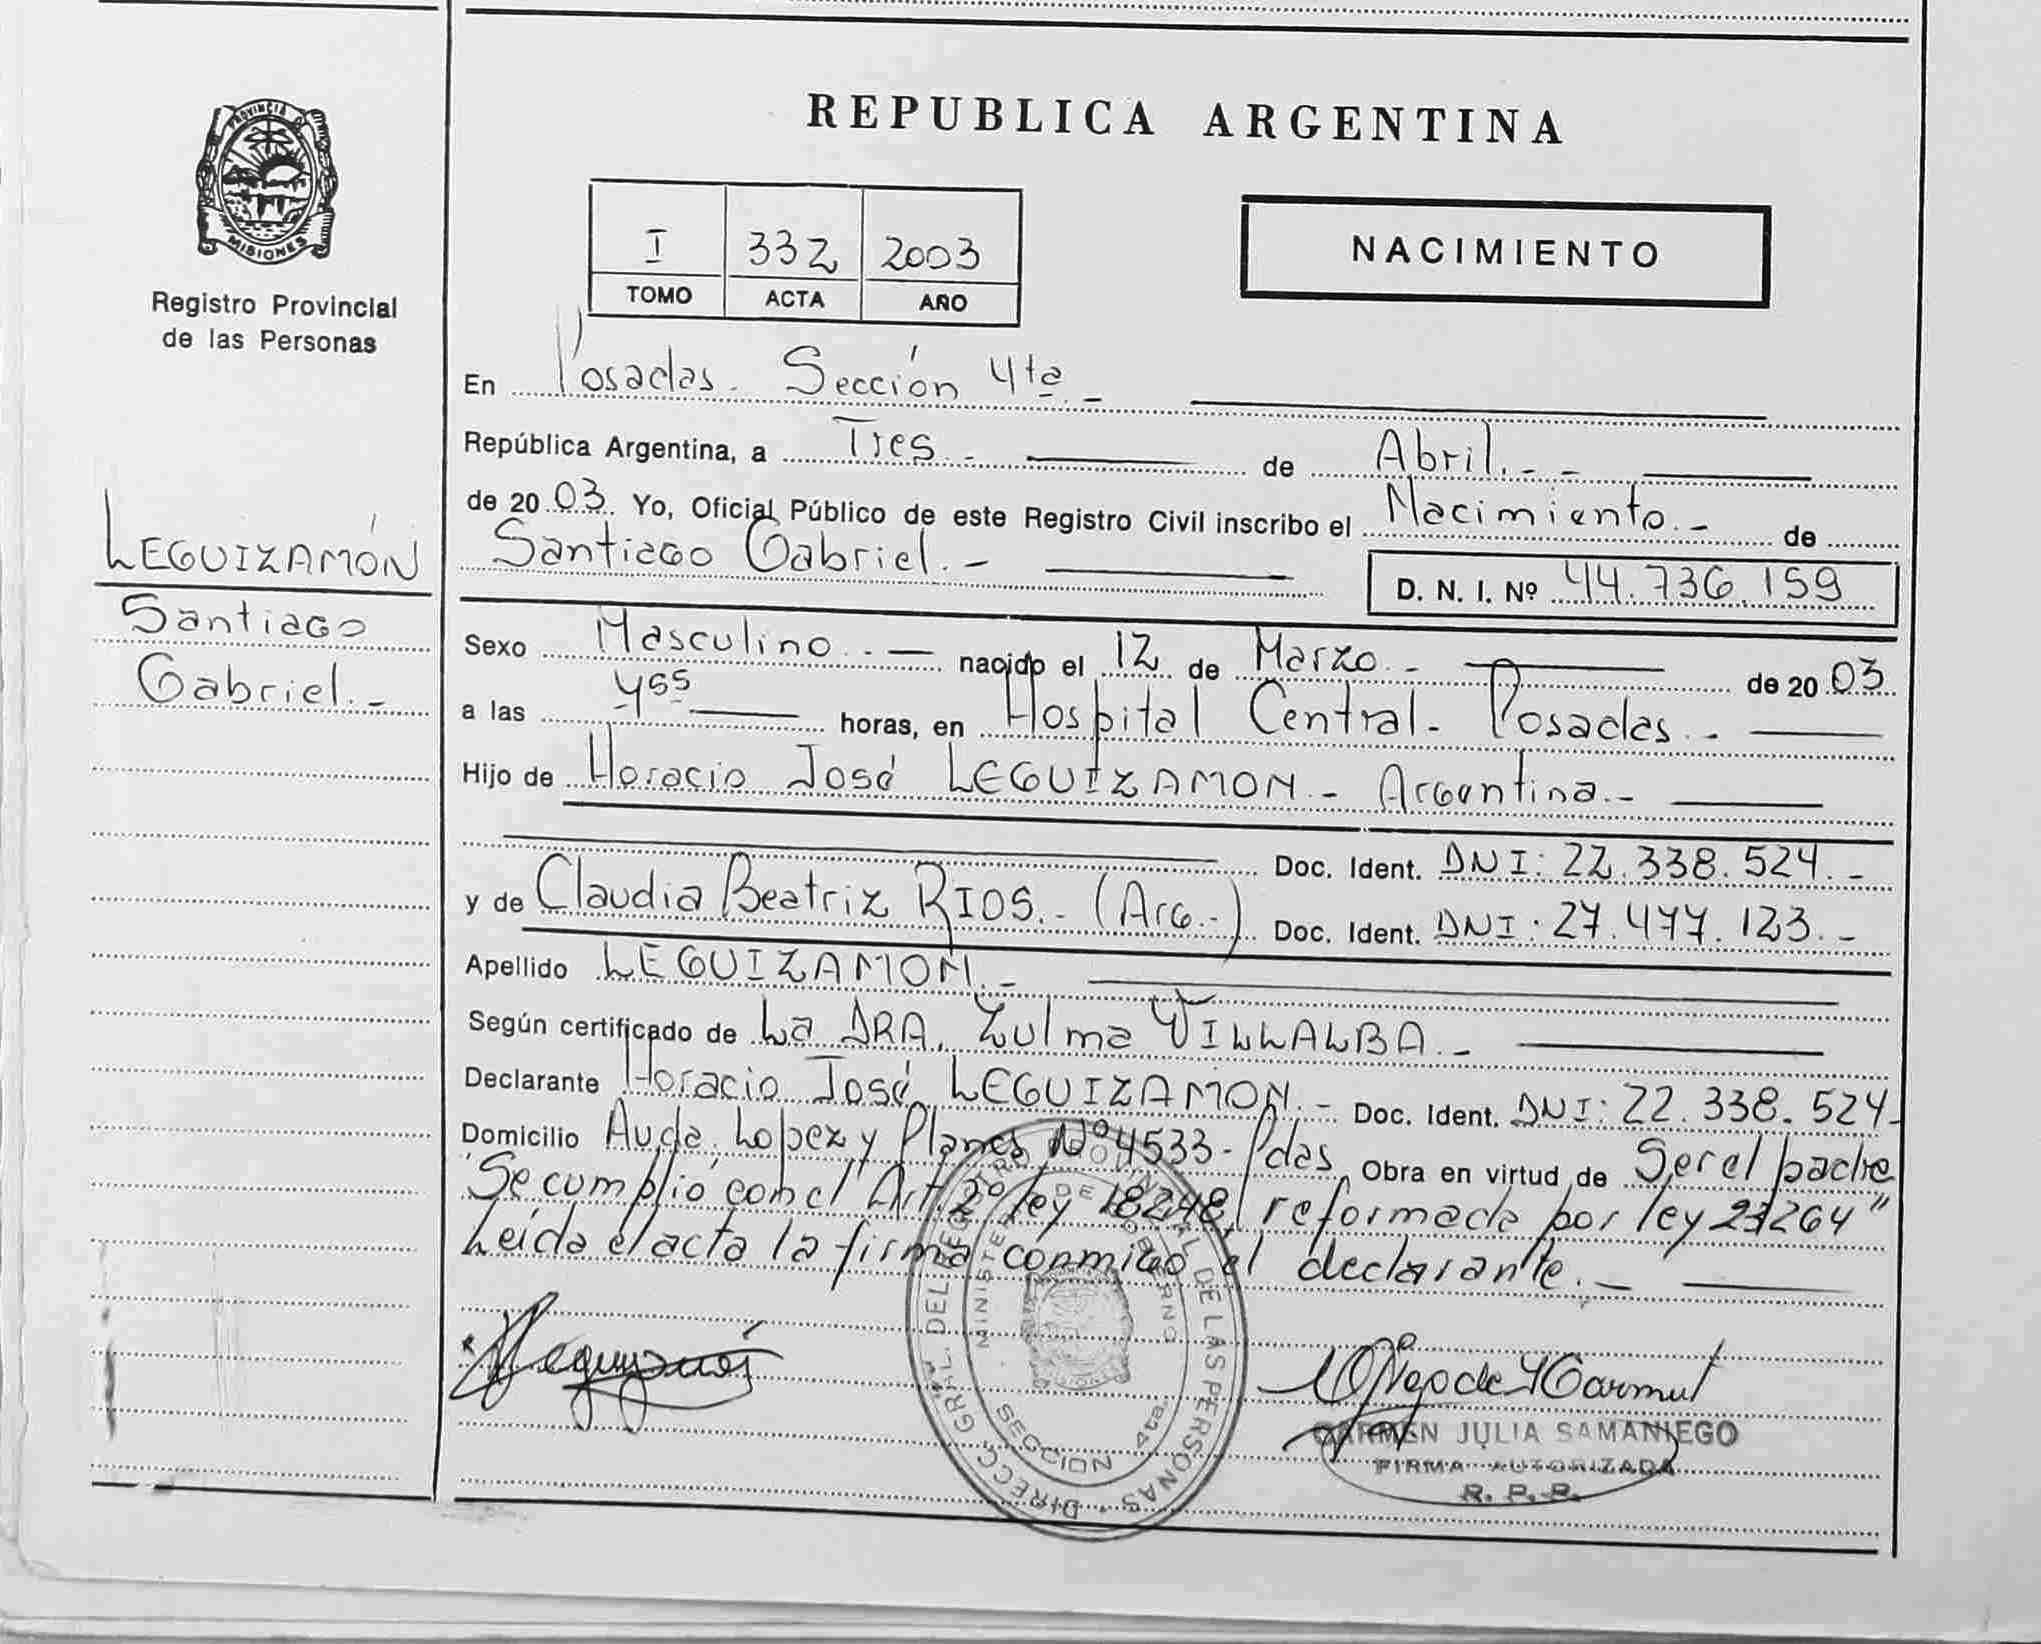 REPUBLICA ARGENTINA
PROVINCIA D
MISIONES
Registro Provincial
de las Personas
I 332 2003
TOMO ACTA AÑO
NACIMIENTO
En Posadas. Sección 4ta.-
República Argentina, a Tres.- de Abril.- -
de 2003. Yo, Oficial Público de este Registro Civil inscribo el Nacimiento.- de
Santiago Gabriel.-
D. N. I. Nº 44.736.159
LEGUIZAMÓN
Santiago
Gabriel.-
Sexo Masculino.- nacido el 12 de Marzo.- de 2003
a las 4⁵⁵ horas, en Hospital Central- Posadas.-
Hijo de Horacio José LEGUIZAMON.- Argentina.-
Doc. Ident. DNI: 22.338.524.-
y de Claudia Beatriz RIOS.- (Arg.-) Doc. Ident. DNI: 27.477.123.-
Apellido LEGUIZAMON.-
Según certificado de La DRA. Zulma VILLALBA.-
Declarante Horacio José LEGUIZAMON.- Doc. Ident. DNI: 22.338.524-
Domicilio Avda. Lopez y Planes Nº 4533- Pdas Obra en virtud de Ser el padre
"Se cumplió con el Art. 2º ley 18248, reformada por ley 23264"
Leída el acta la firma conmigo el declarante.-
DIRECC. GRAL. DEL REGISTRO PROVINCIAL DE LAS PERSONAS
MINISTERIO DE GOBIERNO
SECCION 4ta.
CARMEN JULIA SAMANIEGO
FIRMA AUTORIZADA
R. P. P.